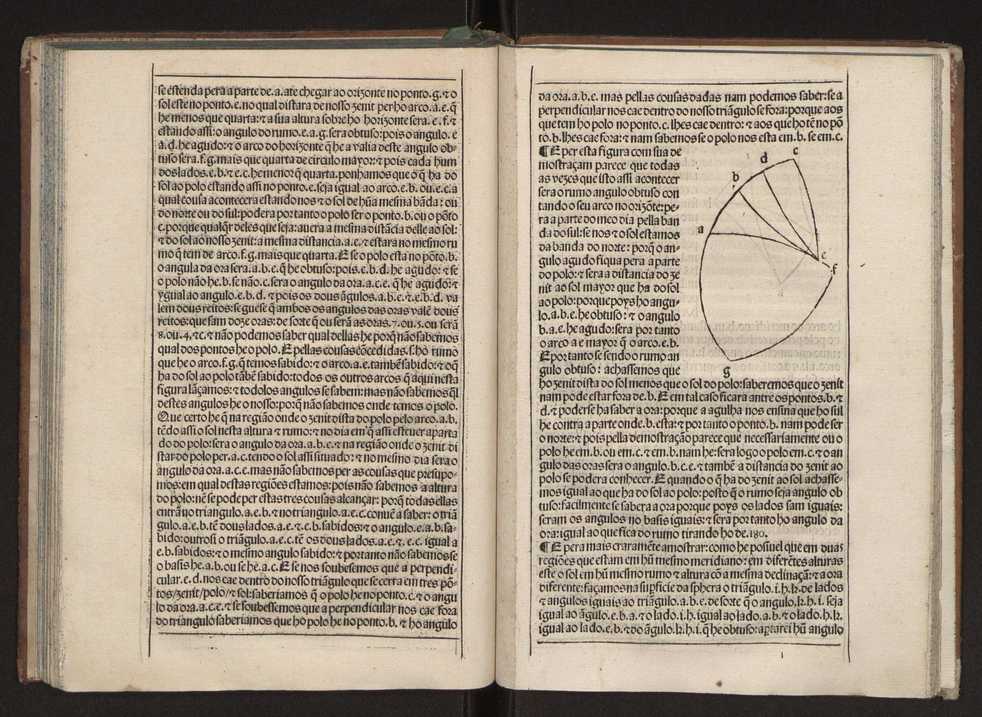 se estenda pera a parte de.a.ate chegar ao orizonte no ponto.g.⁊ o
sol este no ponto.e.no qual distara de nosso zenit perho arco.a.e.q̃
he menos que quarta:⁊ a sua altura sobre ho horizonte sera.e.f.⁊
estando assi:o angulo do rumo.e.a.g.sera obtuso:pois o angulo.e
a.d.he agudo:⁊ o arco do horizonte q̃ he a valia deste angulo ob-
tuso sera.f.g.mais que quarta de circulo mayor:⁊ pois cada hum
dos lados.e.b.⁊ e.c.he menor q̃ quarta.ponhamos que o q̃ ha do
sol ao polo estando assi no ponto.e.seja igual ao arco.e.b.ou.e.c.a
qual cousa acontecera estando nos ⁊ o sol de hũa mesma bãda: ou
do norte ou do sul:podera por tanto o polo ser o ponto.b.ou o põto
c.porque qualq̃r deles que seja:auera a mesma distãcia delle ao sol:
⁊ do sol ao nosso zenit:a mesma distancia.a.e.⁊ estara no mesmo ru
mo q̃ tem de arco.f.g.mais que quarta.E se o polo esta no põto.b.
o angula da ora sera.a.b.e.q̃ he obtuso:pois.e.b.d.he agudo:⁊ se
o polo não he.b.se não.c.sera o angulo da ora.a.c.e.q̃ he agudo:⁊
ygual ao angulo.e.b.d.⁊ pois os dous ãgulos.a.b.e.⁊.e.b.d. va
lem dous reitos:se guese q̃ ambos os angulos das oras valẽ dous
reitos:que sam doze oras:de sorte q̃ ou serã as oras.7.ou.5.ou serã
8.ou.4.⁊c.⁊ não podemos saber qual dellas he porq̃ não sabemos
qual dos pontos he o polo.E pellas cousas cõcedidas.s.ho rumo
que he o arco.f.g.q̃ temos sabido:⁊ o arco.a.e.tambẽ sabido:⁊ o q̃
ha do sol ao polo tãbẽ sabido:todos os outros arcos q̃ aqui nesta
figura lãçamos:⁊ todolos angulos se sabem:mas não sabemos q̃l
destes angulos he o nosso:porq̃ não sabemos onde temos o polo.
Que certo he q̃ na região onde o zenit dista do polo pelo arco.a.b.
tẽdo assi o sol nesta altura ⁊ rumo:⁊ no dia em q̃ assi esteuer aparta
do do polo:sera o angulo da ora.a.b.e.⁊ na região onde o zenit di
star do polo per.a.c.tendo o sol assi situado:⁊ no mesmo dia sera o
angulo da ora.a.c.e.mas não sabemos per as cousas que presupo-
mos:em qual destas regiões estamos:pois não sabemos a altura
do polo:nẽ se pode per estas tres cousas alcançar: porq̃ todas ellas
entrã no triangulo.a.b.e.⁊ no triangulo.a.e.c.conuẽ a saber: o triã
gulo.a.e.b.tẽ dous lados.a.e.⁊.e.b.sabidos:⁊ o angulo.e.a.b.sa-
bido:outrosi o triãgulo.a.e.c.tẽ os dous lados.a.e.⁊ e.c. igual a
e.b.sabidos:⁊ o mesmo angulo sabido:⁊ portanto não sabemos se
o basis he.a.b.ou se he.a.c.E se nos soubesemos que a perpendi-
cular.e.d.nos cae dentro do nosso triãgulo que se cerra em tres põ-
tos/zenit/polo/⁊ sol:saberiamos q̃ o polo he no ponto.c.⁊ o angu
lo da ora.a.c.e.⁊ se soubessemos que a perpendicular nos cae fora
do triangulo saberiamos que ho polo he no ponto.b.⁊ ho angulo
da ora.a.b.e. mas pellas cousas dadas nam podemos saber:se a
perpendicular nos cae dentro do nosso triãgulo se fora:porque aos
que tem ho polo no ponto.c.lhes cae dentro:⁊ aos que ho tẽ no põ
to.b.lhes cae fora:⁊ nam sabemos se o polo nos esta em.b.se em.c.
¶ E per esta figura com sua de
mostraçam parece que todas
as vezes que isto assi acontecer
sera o rumo angulo obtuso con
tando o seu arco no orizõte:pe-
ra a parte do meo dia pella ban
da do sul:se nos ⁊ o sol estamos
da banda do norte: porq̃ o an-
gulo agudo fiqua pera a parte
do polo:⁊ sera a distancia do ze
nit ao sol mayor que ha do sol
ao polo:porque poys ho angu-
lo.a.b.e.he obtuso: ⁊ o angulo
b.a.e.he agudo:sera por tanto
o arco a e mayor q̃ o arco.e.b.
E por tanto se sendo o rumo an
gulo obtuso: achassemos que
ho zenit dista do sol menos que o sol do polo:saberemos que o zenit
nam pode estar fora de.b.E em tal caso ficara antre os pontos.b.⁊
d.⁊ poderse ha saber a ora:porque a agulha nos ensina que ho sul
he contra a parte onde.b.esta:⁊ por tanto o ponto.b. nam pode ser
o norte:⁊ pois pella demostração parece que necessariamente ou o
polo he em.b.ou em.c.⁊ em.b.nam he:sera logo o polo em.c.⁊ o an
gulo das oras sera o angulo.b.c.e.⁊ tambẽ a distancia do zenit ao
polo se podera conhecer.E quando o q̃ ha do zenit ao sol achasse-
mos igual ao que ha do sol ao polo:posto q̃ o rumo seja angulo ob
tuso:facilmente se sabera a ora porque poys os lados sam iguais:
seram os angulos no basis iguais:⁊ sera por tanto ho angulo da
ora:igual ao que fica do rumo tirando ho de.180.
¶ E pera mais craramẽte amostrar:como he posiuel que em duas
regiões que estam em hũ mesmo meridiano: em diferẽtes alturas
este o sol em hũ mesmo rumo ⁊ altura cõ a mesma declinaçã:⁊ a ora
diferente:façamos na supficie da sphera o triãgulo.i.h.k.de lados
⁊ angulos iguais ao triãgulo.a.b.e.de sorte q̃ o angulo.k.h.i. seja
igual ao ãgulo.e.b.a.⁊ o lado.i.h.igual ao lado.a.b.⁊ o lado.h.k.
igual ao lado.e.b.⁊ do ãgulo.k.h.i.q̃ he obtuso:aptarei hũ angulo
c
d
b
a
e
f
g